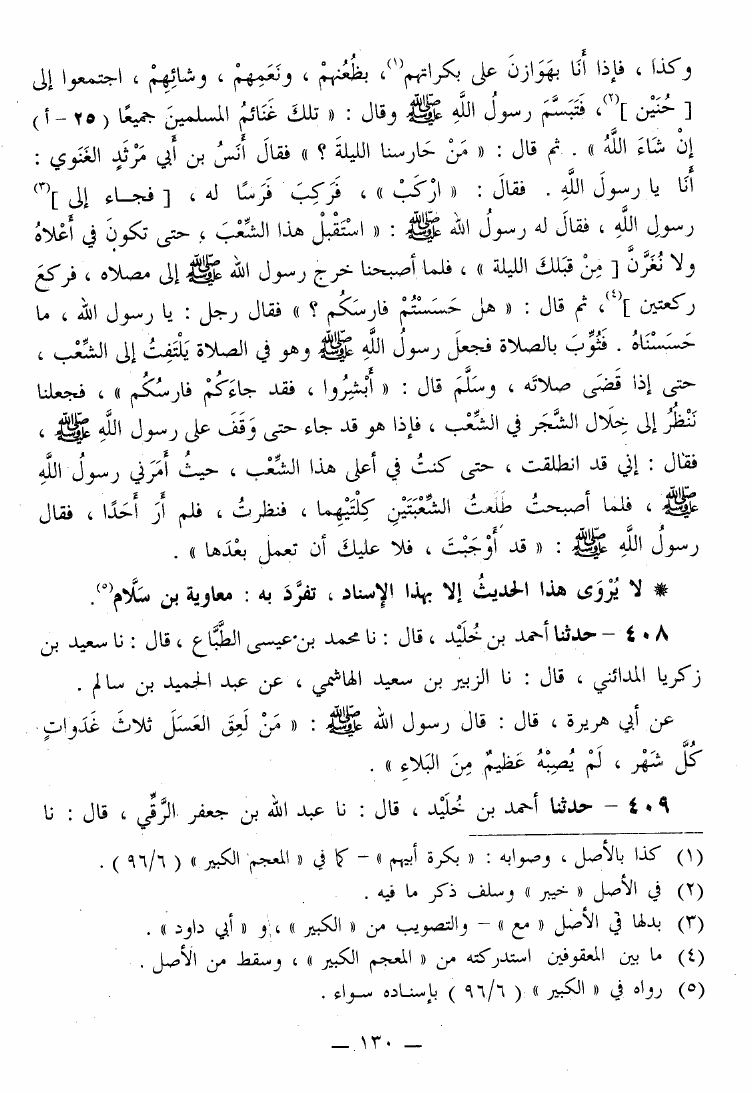 وكذا ، فإذا أَنَا بهَوَازنَ على بكراتهم(١)، بظُعُنهمْ ، ونَعَمِهمْ ، وشائِهِمْ ، اجتمعوا إلى
[ حُنَيْن ](٢)، فَتَبَسَّمَ رسولُ اللَّهِ ﷺ وقال : « تلكَ غَنَائمُ المسلمينَ جميعًا (٢٥ – أ)
إنْ شَاءَ اللَّهُ » . ثم قال : « مَنْ حَارسنا الليلةَ ؟ » فقالَ أَنَسُ بن أَبي مَرْثَدٍ الغَنَوي :
أَنَا يا رسولَ اللَّهِ . فقالَ : « ارْكَبْ » ، فَرَكِبَ فَرَسًا له ، [ فجـاء إلى ](٣)
رسولِ اللَّهِ ، فقالَ له رسولُ الله ﷺ : « اسْتَقْبلْ هذا الشِّعْبَ ، حتى تكونَ في أَعْلاهُ
ولا نُغَرَّنَّ [ مِنْ قبَلكَ الليلة » ، فلما أصبحنا خرج رسول الله ﷺ إلى مصلاه ، فركعَ
ركعتين ](٤)، ثم قال : « هل حَسَسْتُمْ فارسَكُم ؟ » فقال رجل : يا رسول الله ، ما
حَسَسْنَاهُ . فَثُوِّبَ بالصلاة فجعلَ رسولُ اللَّهِ ﷺ وهو في الصلاة يَلْتَفِتُ إلى الشِّعْب ،
حتى إذا قَضَى صلاتَه ، وسَلَّمَ قال : « أَبْشِرُوا ، فقد جاءَكُمْ فارسُكُم » ، فجعلنا
نَنْظُرُ إلى خِلَال الشَّجَر في الشِّعْب ، فإذا هو قد جاء حتى وَقَفَ على رسول اللَّهِ ﷺ ،
فقال : إني قد انطلقت ، حتى كنتُ في أعلى هذا الشِّعْب ، حيثُ أَمَرَني رسولُ اللَّهِ
ﷺ ، فلما أصبحتُ طَلَعتُ الشِّعْبَتَيْنِ كِلْتَيْهِما ، فنظرتُ ، فلم أَرَ أَحَدًا ، فقال
رسولُ اللَّهِ ﷺ : « قد أَوْجَبْتَ ، فلا عليكَ أن تعمل بعْدَها » .
* لا يُرْوَى هذا الحديثُ إلا بهذا الإسناد ، تفرَّدَ به : معاوية بن سَلَّام(٥).
٤٠٨ – حدثنا أحمد بن خُلَيْد ، قال : نا محمد بن عيسى الطَّبَّاع ، قال : نا سعيد بن
زكريا المدائني ، قال : نا الزبير بن سعيد الهاشمي ، عن عبد الحميد بن سالم .
عن أبي هريرة ، قال : قال رسول الله ﷺ : « مَنْ لَعِقَ العَسَلَ ثلاثَ غَدَواتٍ
كُلَّ شَهْر ، لَمْ يُصِبْهُ عَظِيمٌ مِنَ البَلَاءِ » .
٤٠٩ – حدثنا أحمد بن خُلَيْد ، قال : نا عبد الله بن جعفر الرَّقِّي ، قال : نا
(١) كذا بالأصل ، وصوابه : « بكرة أبيهم » – كما في « المعجم الكبير » ( ٩٦/٦ ) .
(٢) في الأصل « خيبر » وسلف ذكر ما فيه .
(٣) بدلها في الأصل « مع » – والتصويب من « الكبير » ، و « أبي داود » .
(٤) ما بين المعقوفين استدركته من « المعجم الكبير » ، وسقط من الأصل .
(٥) رواه في « الكبير » ( ٩٦/٦ ) بإسناده سـواء .
— ١٣٠ —